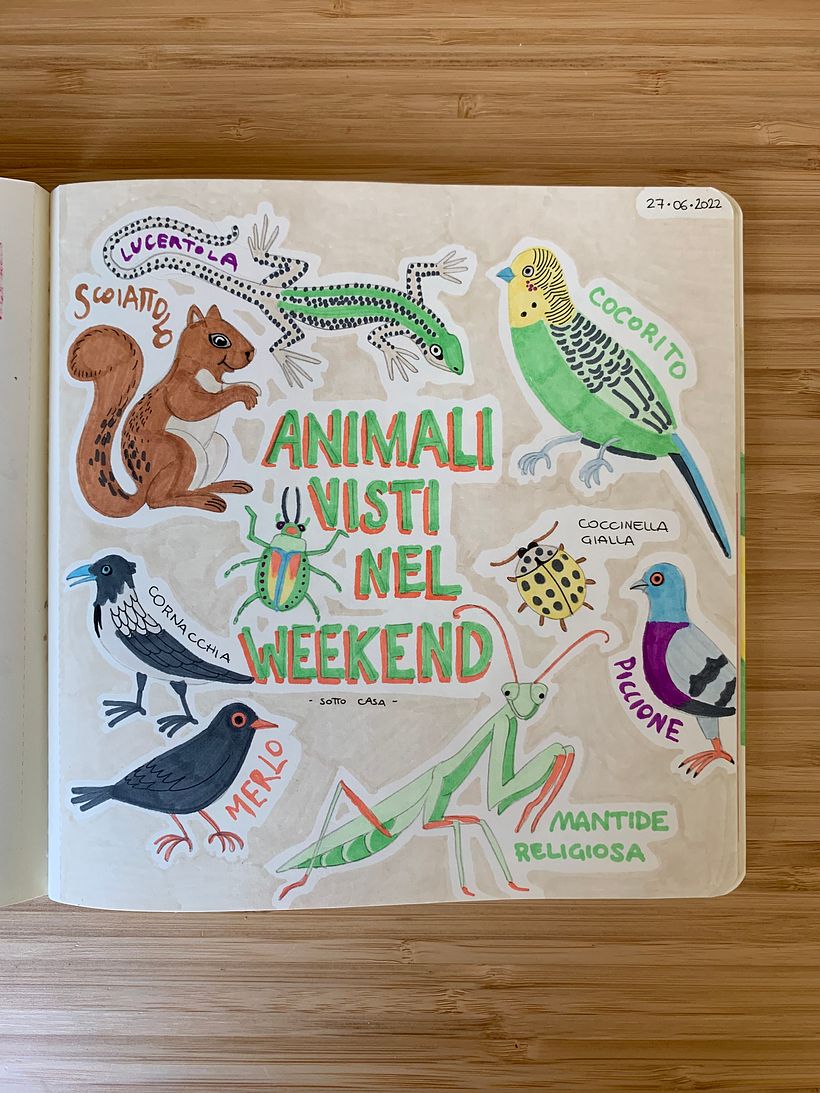 27·06·2022
LUCERTOLA
SCOIATTOLO
COCORITO
ANIMALI
VISTI
NEL
WEEKEND
- SOTTO CASA -
COCCINELLA
GIALLA
CORNACCHIA
PICCIONE
MERLO
MANTIDE
RELIGIOSA